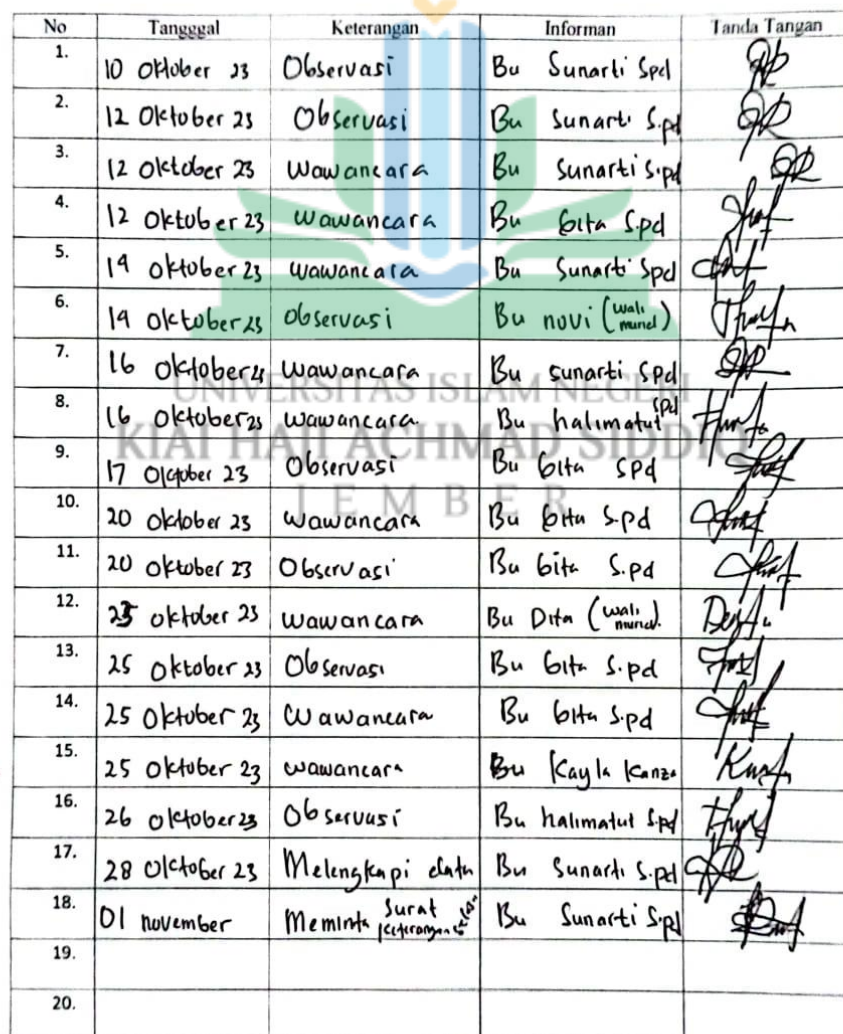 No Tangggal Keterangan Informan Tanda Tangan
1. 10 Oktober 23 Observasi Bu Sunarti Spd
2. 12 Oktober 23 Observasi Bu Sunarti S.pd
3. 12 Oktober 23 Wawancara Bu Sunarti S.pd
4. 12 Oktober 23 Wawancara Bu Gita S.pd
5. 19 Oktober 23 Wawancara Bu Sunarti Spd
6. 19 Oktober 23 Observasi Bu novi (wali murid)
7. 16 Oktober Wawancara Bu Sunarti Spd
UNIVERSITAS ISLAM NEGERI
8. 16 Oktober 23 Wawancara Bu halimatut Spd
KIAI HAJI ACHMAD SIDDIQ
9. 17 Oktober 23 Observasi Bu Gita Spd
JEMBER
10. 20 Oktober 23 Wawancara Bu Gita S.pd
11. 20 Oktober 23 Observasi Bu Gita S.pd
12. 23 Oktober 23 Wawancara Bu Dita (wali murid)
13. 25 Oktober 23 Observasi Bu Gita S.pd
14. 25 Oktober 23 Wawancara Bu Gita S.pd
15. 25 Oktober 23 Wawancara Bu Kayla Kanza
16. 26 Oktober 23 Observasi Bu halimatut S.pd
17. 28 Oktober 23 Melengkapi data Bu Sunarti S.pd
18. 01 november Meminta Surat Keterangan Bu Sunarti S.pd
19.
20.